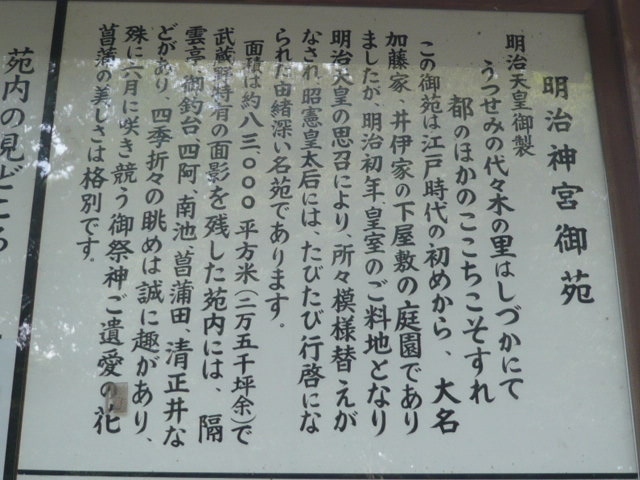 明治神宮御苑
明治天皇御製
うつせみの代々木の里はしづかにて
都のほかのここちこそすれ
この御苑は江戸時代の初めから、大名
加藤家、井伊家の下屋敷の庭園であり
ましたが、明治初年、皇室のご料地となり
明治天皇の思召により、所々模様替えが
なされ、昭憲皇太后には、たびたび行啓にな
られた由緒深い名苑であります。
面積は約八三、〇〇〇平方米(二万五千坪余)で
武蔵野特有の面影を残した苑内には、隔
雲亭、御釣台、四阿、南池、菖蒲田、清正井な
どがあり、四季折々の眺めは誠に趣があり、
殊に六月に咲き競う御祭神ご遺愛の花
菖蒲の美しさは格別です。
苑内の見どころ